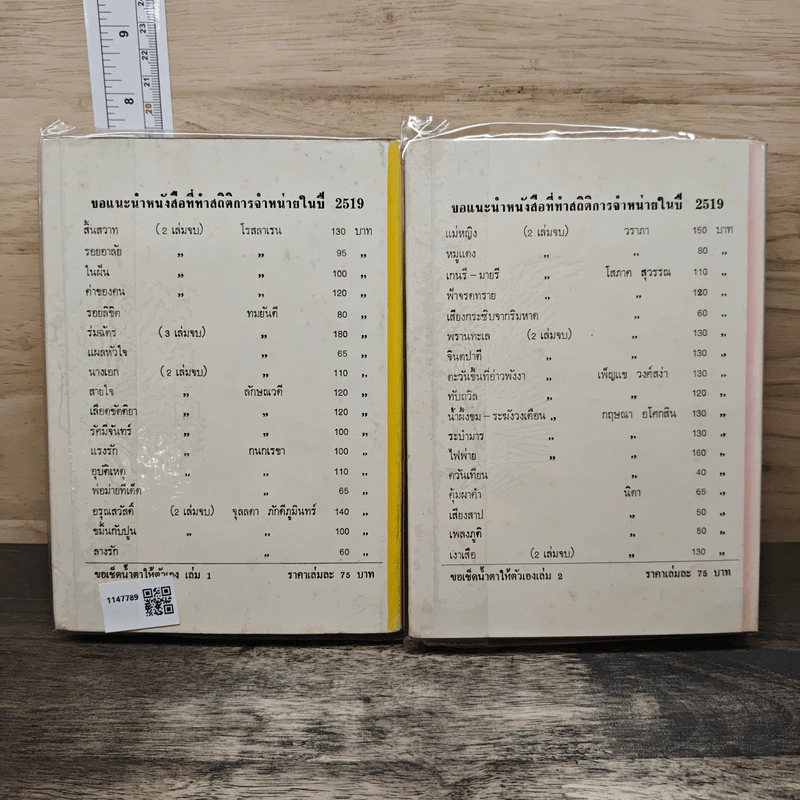 9
8
23
22
21
20
ขอแนะนำหนังสือที่ทำสถิติการจำหน่ายในปี 2519
สิ้นสวาท (2 เล่มจบ) โรสลาเรน 130 บาท
รอยอาลัย ,, ,, 95 ,,
ในฝัน ,, ,, 100 ,,
ค่าของคน ,, ,, 120 ,,
รอยลิขิต ทมยันตี 80 ,,
ร่มฉัตร (3 เล่มจบ) ,, 180 ,,
แผลหัวใจ ,, 65 ,,
นางเอก (2 เล่มจบ) ,, 110 ,,
สายใจ ,, ลักษณวดี 120 ,,
เลือดขัตติยา ,, ,, 120 ,,
รัศมีจันทร์ ,, ,, 100 ,,
แรงรัก ,, กนกเรขา 100 ,,
อุบัติเหตุ ,, ,, 110 ,,
พ่อม่ายทีเด็ด ,, 65 ,,
อรุณสวัสดิ์ (2 เล่มจบ) จุลลดา ภักดีภูมินทร์ 140 ,,
ขมิ้นกับปูน ,, ,, 100 ,,
ลางรัก ,, 60 ,,
ขอเช็ดน้ำตาให้ตัวเอง เล่ม 1 ราคาเล่มละ 75 บาท
1147789
ขอแนะนำหนังสือที่ทำสถิติการจำหน่ายในปี 2519
แม่หญิง (2 เล่มจบ) วราภา 150 บาท
หมูแดง ,, ,, 80 ,,
เกนรี – มายรี ,, โสภาค สุวรรณ 110 ,,
ฟ้าจรดทราย ,, ,, 120 ,,
เสียงกระซิบจากริมหาด ,, 60 ,,
พรานทะเล (2 เล่มจบ) ,, 130 ,,
จินตปาตี ,, ,, 130 ,,
ตะวันขึ้นที่อ่าวพังงา ,, เพ็ญแข วงศ์สง่า 130 ,,
ทับถวิล ,, ,, 120 ,,
น้ำผึ้งขม – ระฆังวงเดือน ,, กฤษณา อโศกสิน 130 ,,
ระบำมาร ,, ,, 130 ,,
ไฟพ่าย ,, ,, 160 ,,
ควันเทียน ,, 40 ,,
คุ้มผาคำ นิดา 65 ,,
เสียงสาป ,, 50 ,,
เพลงภูติ ,, 50 ,,
เงาเสือ (2 เล่มจบ) ,, 130 ,,
ขอเช็ดน้ำตาให้ตัวเองเล่ม 2 ราคาเล่มละ 75 บาท